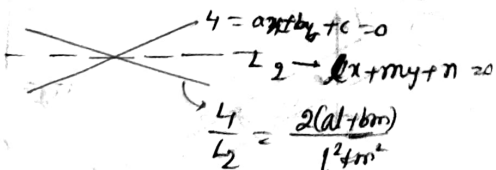 L₁ = ax+by+c=0
L₂ → lx+my+n=0
L₁/L₂ = 2(al+bm)/l²+m²